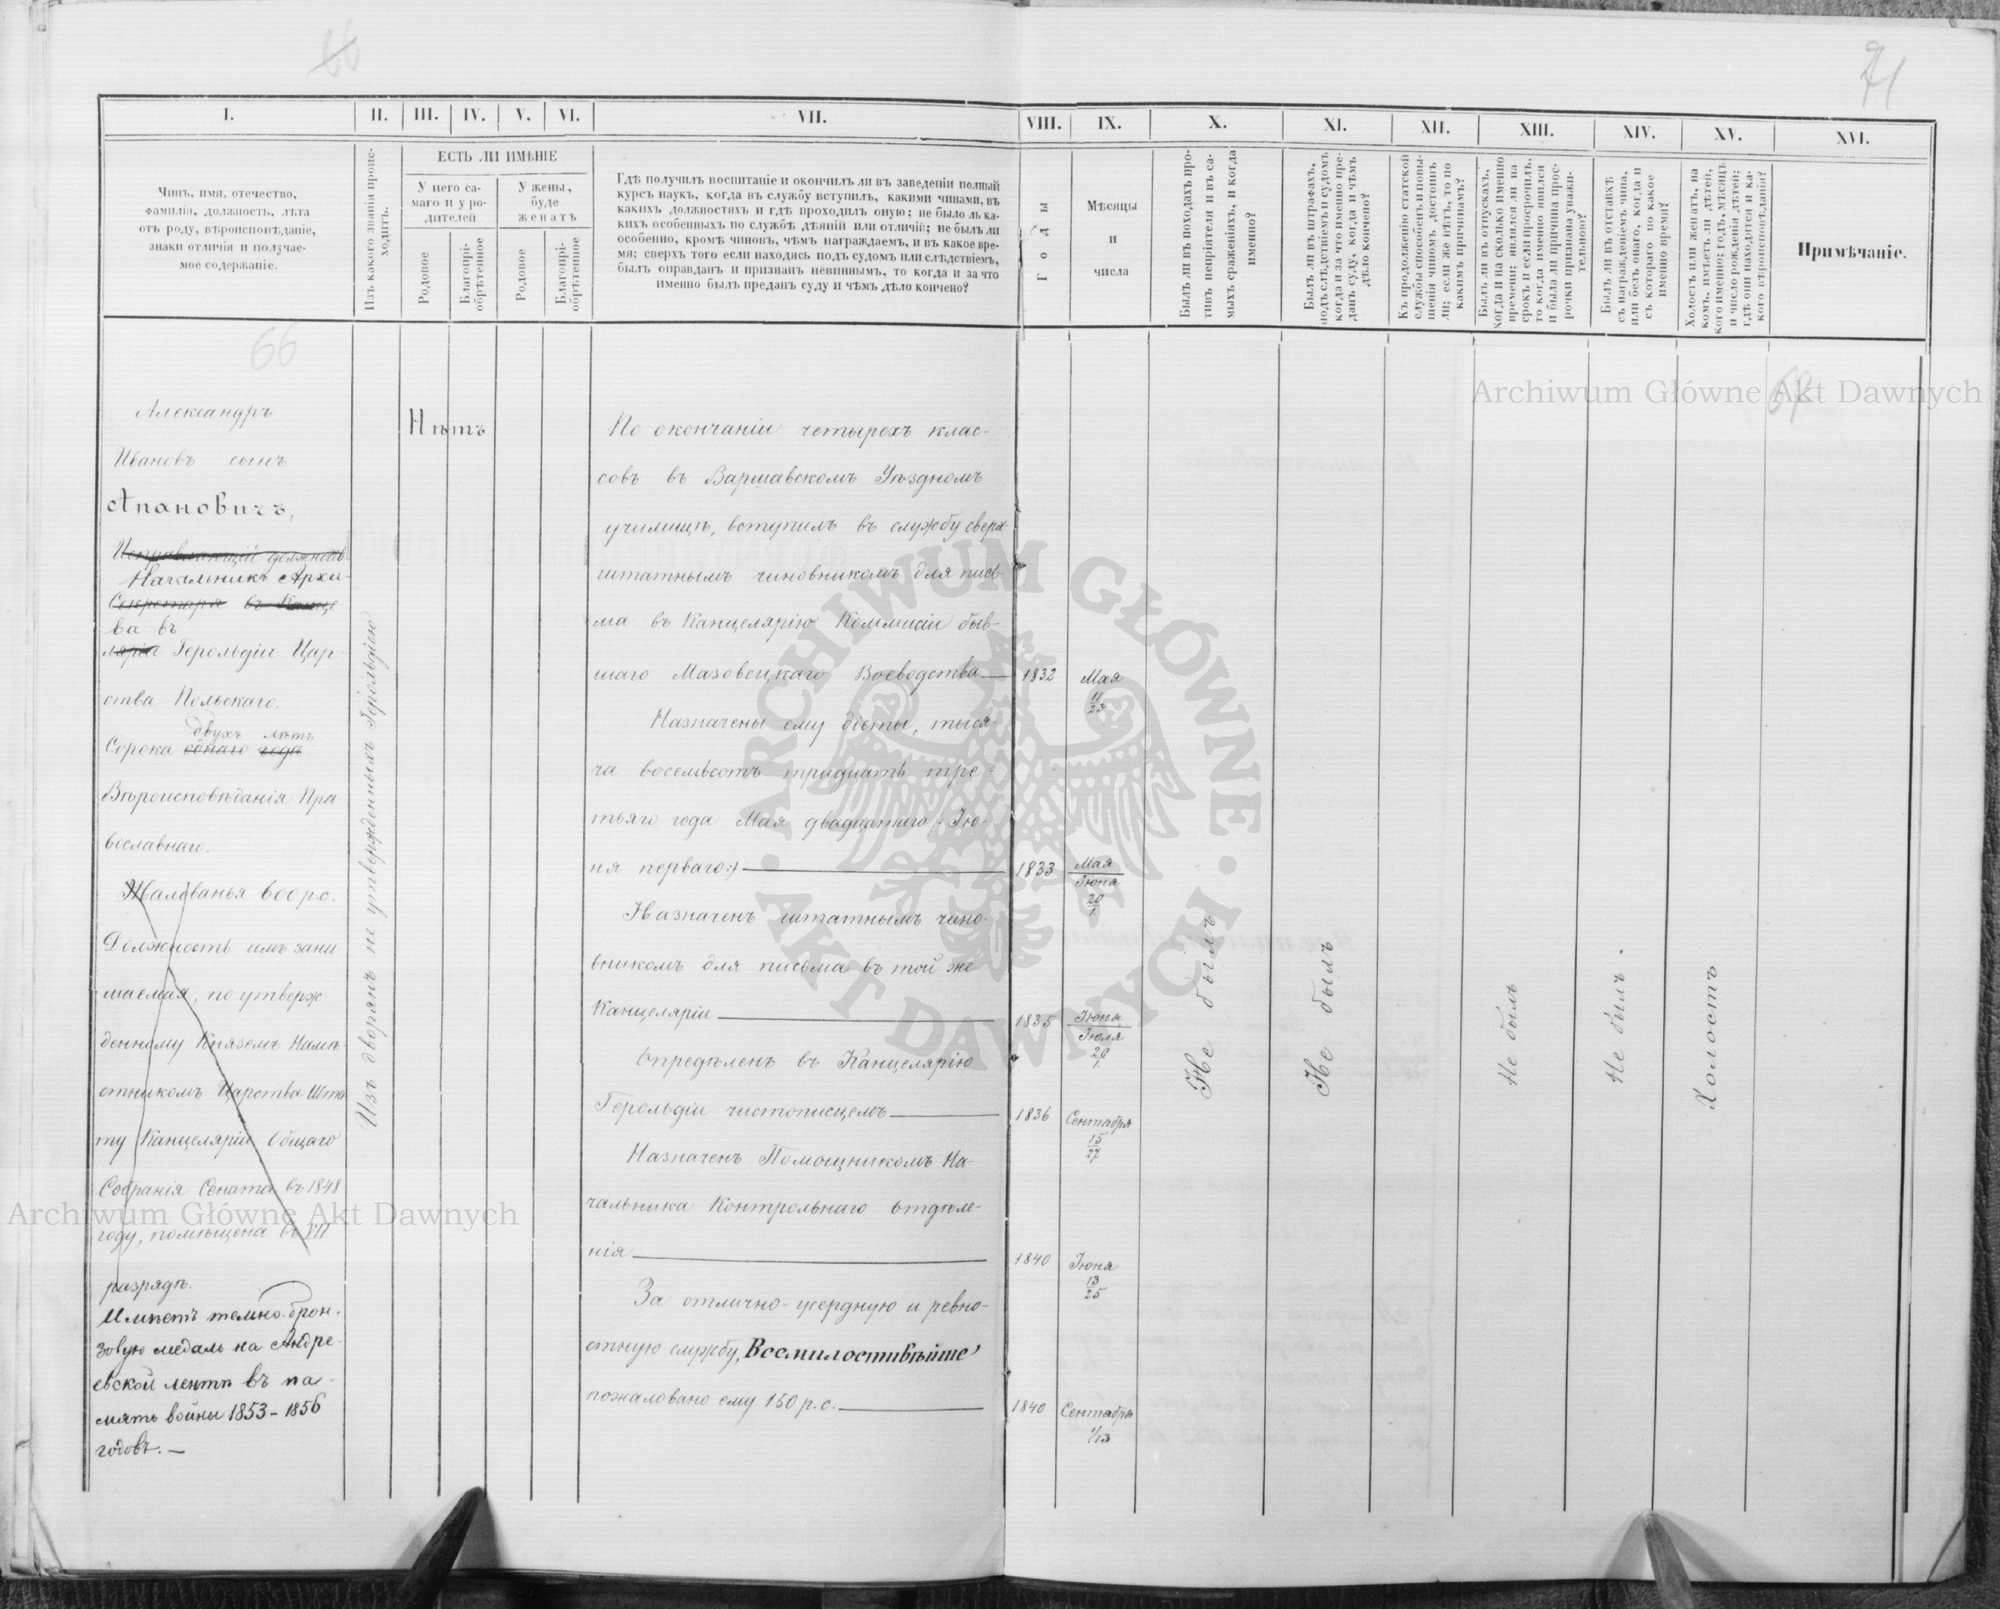 66
71
I.
II.
III.
IV.
V.
VI.
VII.
VIII.
IX.
X.
XI.
XII.
XIII.
XIV.
XV.
XVI.
Чинъ, имя, отечество,
фамилія, должность, лѣта
отъ роду, вѣроисповѣданіе,
знаки отличія и получае-
мое содержаніе.
Изъ какого званія проис-
ходитъ.
ЕСТЬ ЛИ ИМѢНІЕ
У него са-
маго и у ро-
дителей
У жены,
буде
женатъ
Родовое
Благопрі-
обрѣтенное
Родовое
Благопрі-
обрѣтенное
Гдѣ получилъ воспитаніе и окончилъ ли въ заведеніи полный
курсъ наукъ, когда въ службу вступилъ, какими чинами, въ
какихъ должностяхъ и гдѣ проходилъ оную; не было ль ка-
кихъ особенныхъ по службѣ дѣяній или отличій; не былъ ли
особенно, кромѣ чиновъ, чѣмъ награждаемъ, и въ какое вре-
мя; сверхъ того если находясь подъ судомъ или слѣдствіемъ,
былъ оправданъ и признанъ невиннымъ, то когда и за что
именно былъ преданъ суду и чѣмъ дѣло кончено?
Годы
Мѣсяцы
и
числа
Былъ ли въ походахъ про-
тивъ непріятеля и въ са-
мыхъ сраженіяхъ, и когда
именно?
Былъ ли въ штрафахъ,
подъ слѣдствіемъ и судомъ
когда и за что именно пре-
данъ суду, когда и чѣмъ
дѣло кончено?
Къ продолженію статской
службы способенъ и повы-
шенія чиномъ достоинъ
ли; если же нѣтъ, то по
какимъ причинамъ?
Былъ ли въ отпускахъ,
когда и на сколько именно
времени; явился ли на
срокъ и если просрочилъ,
то когда именно явился
и была ли причина прос-
рочки признана уважи-
тельною?
Былъ ли въ отставкѣ
съ награжденіемъ чина,
или безъ онаго, когда и
съ котораго по какое
именно время?
Холостъ или женатъ, на
комъ, имѣетъ ли дѣтей,
кого именно; годъ, мѣсяцъ
и число рожденія дѣтей;
гдѣ они находятся и ка-
кого вѣроисповѣданія?
Примѣчаніе.
66
67
Archiwum Główne Akt Dawnych
Александръ
Ивановъ сынъ
Апановичъ,
Исправляющій должность
Начальникъ Архи-
Секретаря въ Канце
ва въ
ляріи Герольдіи Цар-
ства Польскаго.
двухъ лѣтъ
Сорока однаго года.
Вѣроисповѣданія Пра-
вославнаго.
Жалованья 600 р.с.
Должность имъ зани
маемая, по утверж
денному Княземъ Намѣ-
стникомъ Царства Шта
ту Канцеляріи Общаго
Собранія Сената въ 1848
году, помѣщена въ VII
разрядѣ.
Имѣетъ темно-брон-
зовую медаль на Андре-
евской лентѣ въ па-
мять войны 1853-1856
годовъ. —
Изъ дворянъ не утвержденныхъ Герольдіею
Нѣтъ
По окончаніи четырехъ клас-
совъ въ Варшавскомъ Уѣздномъ
училищѣ, вступилъ въ службу сверх-
штатнымъ чиновникомъ для пись-
ма въ Канцелярію Коммисіи быв-
шаго Мазовецкаго Воеводства — 1832 Мая 11/23
Назначены ему діеты, тыся-
ча восемьсотъ тридцать тре-
тьяго года Мая двадцатаго /: Ію-
ня перваго :/ — 1833 Мая/Іюня 20/1
Назначенъ штатнымъ чино-
вникомъ для письма въ той же
Канцеляріи — 1835 Іюня/Іюля 20/1.
Опредѣленъ въ Канцелярію
Герольдіи чистописцемъ — 1836 Сентября 15/27
Назначенъ Помощникомъ На-
чальника Контрольнаго отдѣле-
нія — 1840 Іюня 13/25
За отлично-усердную и ревно-
стную службу, Всемилостивѣйше
пожаловано ему 150 р.с. — 1840 Сентября 1/13
Не былъ
Не былъ
Не былъ
Не былъ.
Холостъ
ARCHIWUM GŁÓWNE AKT DAWNYCH
Archiwum Główne Akt Dawnych